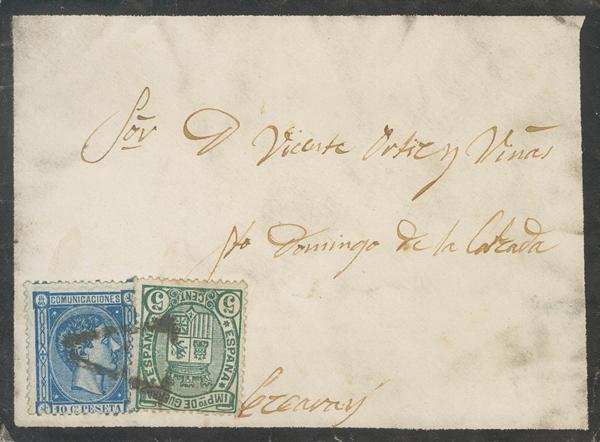 Sor D Vicente Ortiz y Viñas
Sto Domingo de la Calzada
Ezcaray
COMUNICACIONES
10 Cs PESETA
5 CENTs 5
ESPAÑA
ESPAÑA
IMPTO DE GUERRA